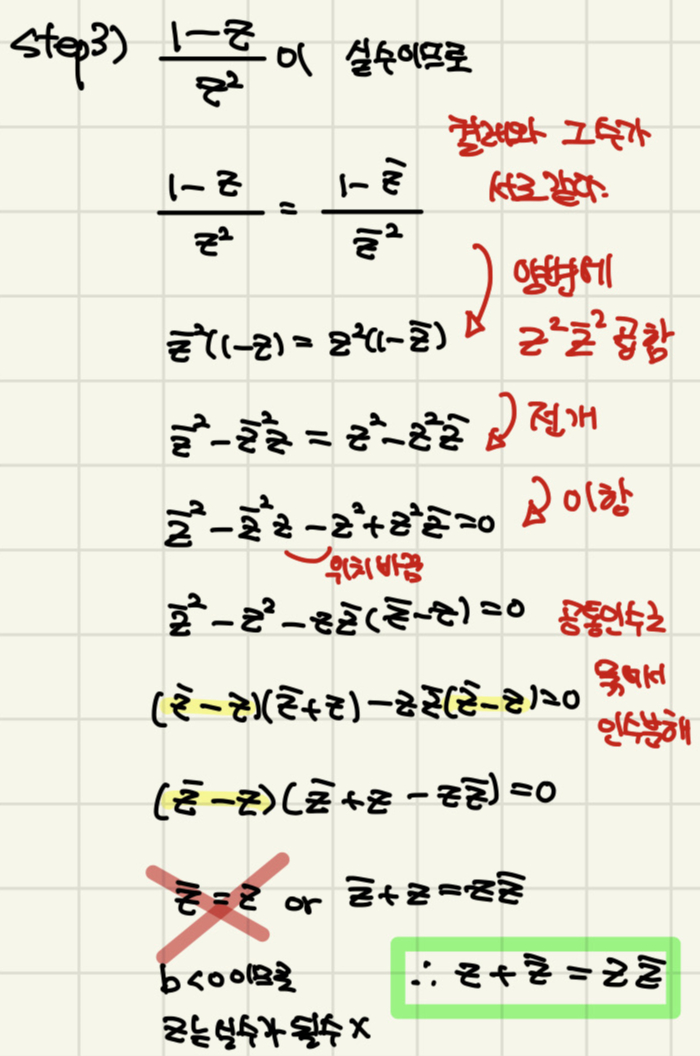 step3) (1-z)/z² 이 실수이므로
켤레와 그 수가
서로 같다.
(1-z)/z² = (1-z̄)/z̄²
양변에
z²z̄² 곱함
z̄²(1-z) = z²(1-z̄)
전개
z̄² - z̄²z = z² - z²z̄
이항
z̄² - z̄²z - z² + z²z̄ = 0
위치 바꿈
z̄² - z² - zz̄(z̄-z) = 0
공통인수로
묶어서
인수분해
(z̄-z)(z̄+z) - zz̄(z̄-z) = 0
(z̄-z)(z̄+z-zz̄) = 0
z̄=z or z̄+z=zz̄
b<0이므로
z는 실수가 될수 X
∴ z+z̄ = zz̄